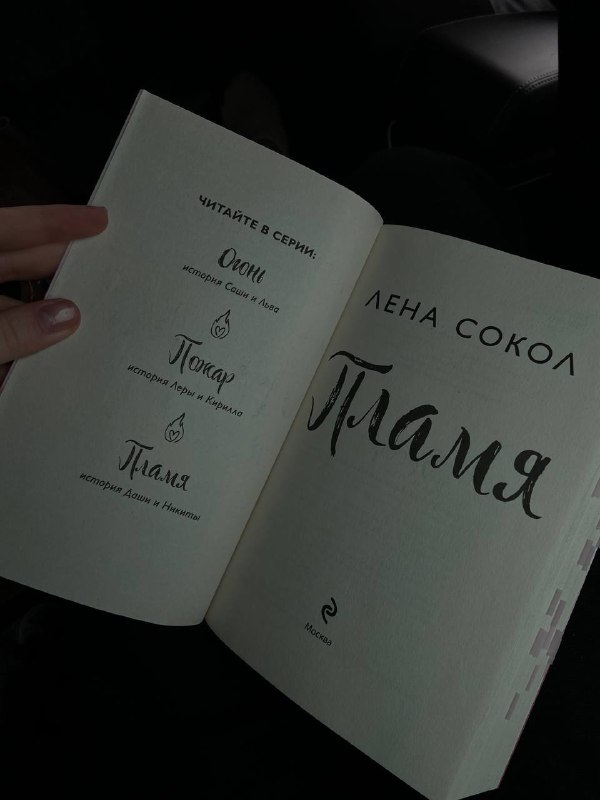 ЧИТАЙТЕ В СЕРИИ:
Огонь
история Саши и Льва
Пожар
история Леры и Кирилла
Пламя
история Даши и Никиты
ЛЕНА СОКОЛ
Пламя
Москва